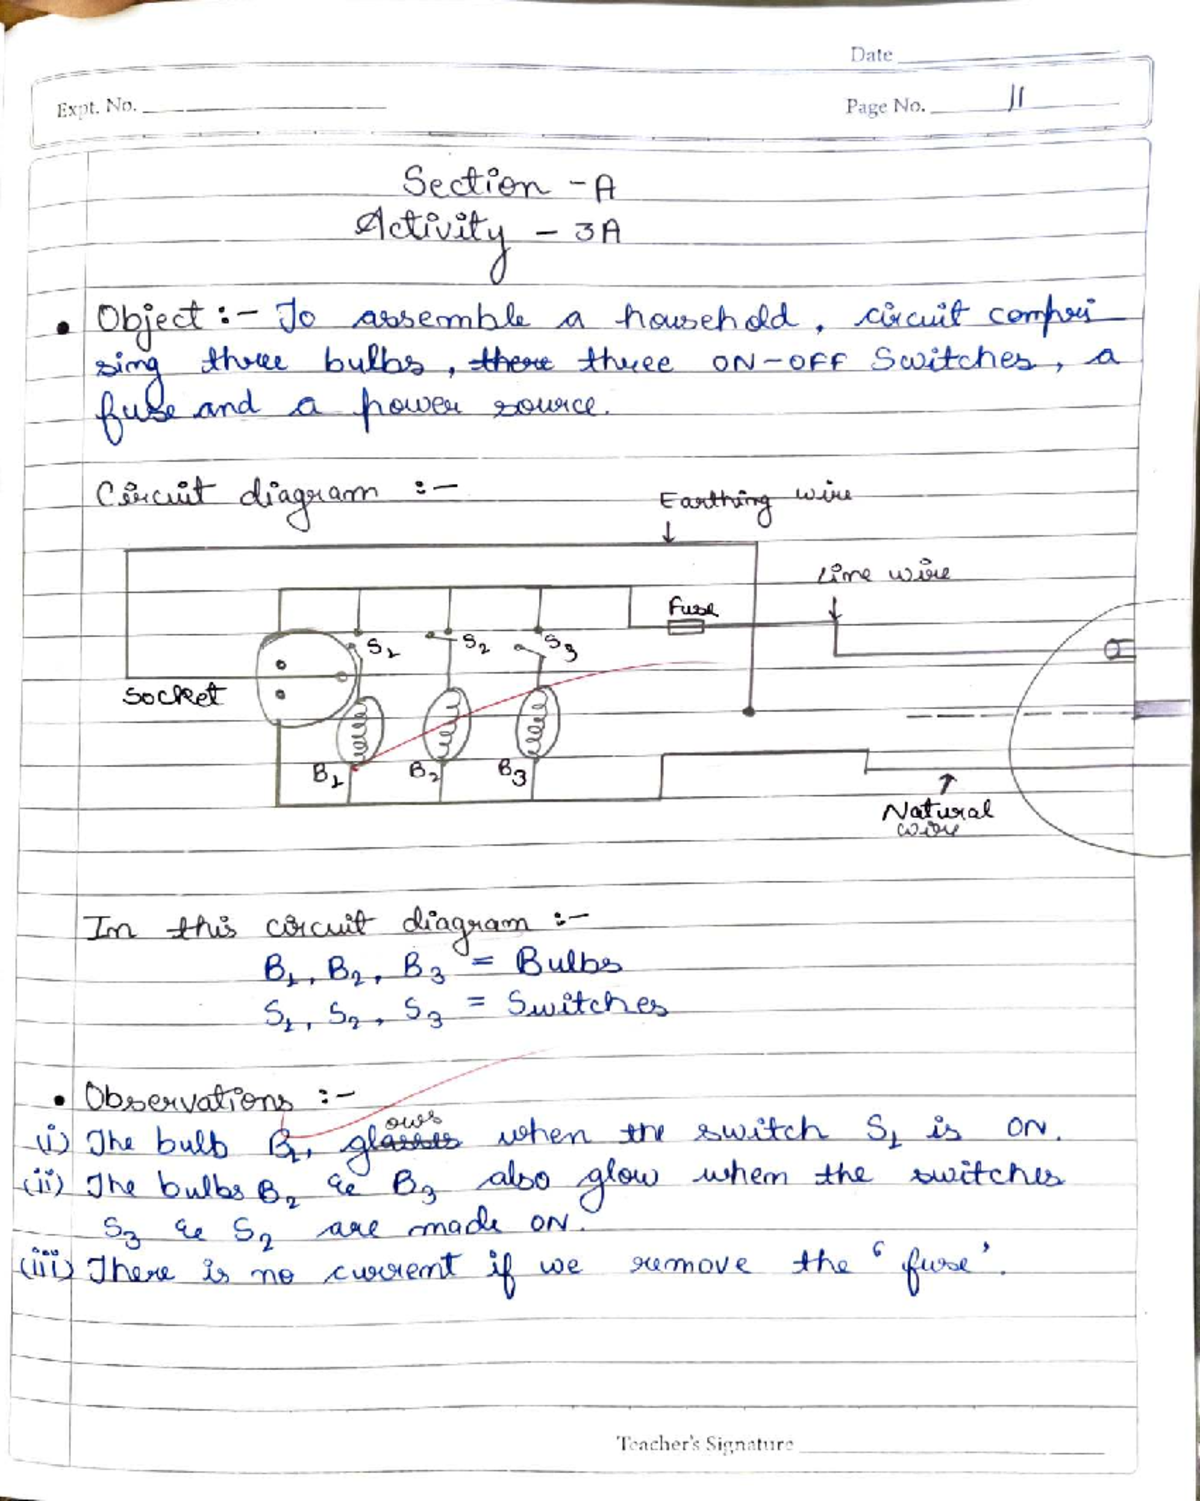 Date
Expt. No.
Page No. 11
Section - A
Activity - 3A
• Object :- To assemble a household, circuit compri
sing three bulbs, there three ON-OFF Switches, a
fuse and a power source.
Circuit diagram :-
Earthing wire
Line wire
Fuse
S1 S2 S3
Socket
B1 B2 B3
Natural
wire
In this circuit diagram :-
B1, B2, B3 = Bulbs
S1, S2, S3 = Switches
• Observations :-
(i) The bulb B1, glows when the switch S1 is ON.
(ii) The bulbs B2 & B3 also glow when the switches
S3 & S2 are made ON.
(iii) There is no current if we remove the 'fuse'.
Teacher's Signature